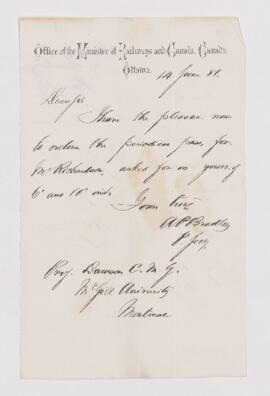 Office of the Minister of Railways and Canals, Canada.
Ottawa.
14 June 81.
Dear Sir
I have the pleasure now
to enclose the periodical pass, for
Mr Richardson asked for in yours, of
6th and 10th inst.
Yours truly
A P Bradley
P. Secy
Prof. Dawson C. M. G.
McGill University
Montreal